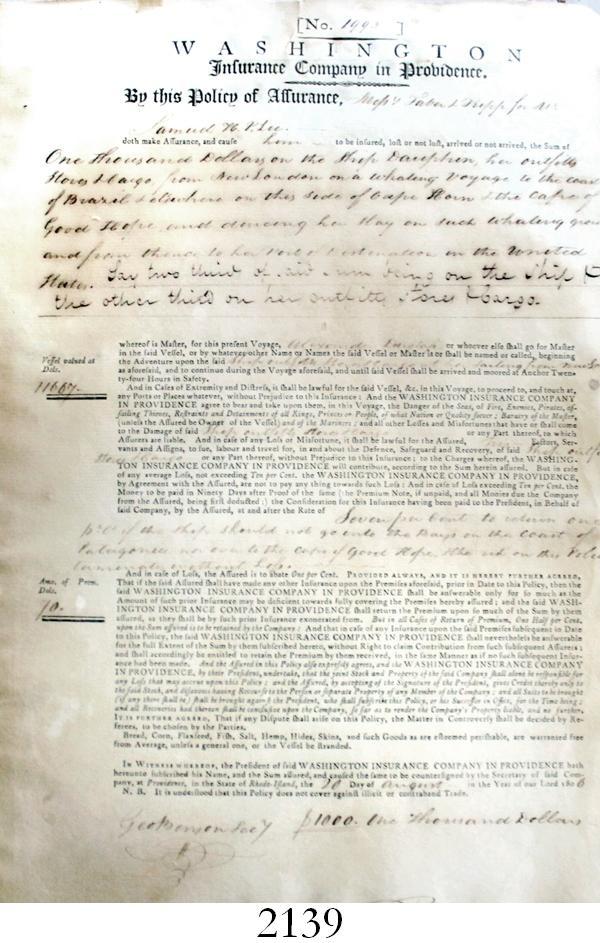 [No. 199 ]
WASHINGTON
Inſurance Company in Providence.
By this Policy of Aſſurance, Meſſrs Taber & Tripp for Mr
Samuel H. P. Lee
doth make Aſſurance, and cauſe him to be inſured, loſt or not loſt, arrived or not arrived, the Sum of
One Thousand Dollars on the Ship Dauphin, her outfits
Stores & Cargo, from New London on a Whaling Voyage to the coast
of Brazil & elsewhere on this side of Cape Horn & the Cape of
Good Hope, and during her stay on such whaling
and from thence to her Port of Destination in the United
States. Say two third of said sum being on the Ship &
the other third on her outfits, Stores & Cargo.
whereof is Maſter, for this preſent Voyage, or whoever elſe ſhall go for Maſter
in the ſaid Veſſel, or by whatever other Name or Names the ſaid Veſſel or Maſter is or ſhall be named or called, beginning
Veſſel valued at
Dols.
the Adventure upon the ſaid
as aforeſaid, and to continue during the Voyage aforeſaid, and until ſaid Veſſel ſhall be arrived and moored at Anchor Twen-
ty-four Hours in Safety.
11667.
And in Caſes of Extremity and Diſtreſs, it ſhall be lawful for the ſaid Veſſel, &c. in this Voyage, to proceed to, and touch at,
any Ports or Places whatever, without Prejudice to this Inſurance: And the WASHINGTON INSURANCE COMPANY
IN PROVIDENCE agree to bear and take upon them, in this Voyage, the Danger of the Seas, of Fire, Enemies, Pirates, aſ-
ſailing Thieves, Reſtraints and Detainments of all Kings, Princes or People, of what Nation or Quality ſoever; Barratry of the Maſter,
(unleſs the Aſſured be Owner of the Veſſel) and of the Mariners; and all other Loſſes and Misfortunes that have or ſhall come
to the Damage of ſaid or any Part thereof, to which
Aſſurers are liable. And in caſe of any Loſs or Misfortune, it ſhall be lawful for the Aſſured, Factors, Ser-
vants and Aſſigns, to ſue, labour and travel for, in and about the Defence, Safeguard and Recovery, of ſaid
or any Part thereof, without Prejudice to this Inſurance; to the Charges whereof, the WASHING-
TON INSURANCE COMPANY IN PROVIDENCE will contribute, according to the Sum herein aſſured. But in caſe
of any average Loſs, not exceeding Ten per Cent. the WASHINGTON INSURANCE COMPANY IN PROVIDENCE,
by Agreement with the Aſſured, are not to pay any thing towards ſuch Loſs: And in caſe of Loſs exceeding Ten per Cent. the
Money to be paid in Ninety Days after Proof of the ſame (the Premium Note, if unpaid, and all Monies due the Company
from the Aſſured, being firſt deducted;) the Conſideration for this Inſurance having been paid to the Preſident, in Behalf of
ſaid Company, by the Aſſured, at and after the Rate of
Seven per Cent to return one
pr Ct if the Ship should not go into the Bays on the Coast of
Patagonia nor over to the Cape of Good Hope, & the risk on this Policy
Amo. of Prem.
Dols.
70.
And in caſe of Loſs, the Aſſured is to abate One per Cent. PROVIDED ALWAYS, AND IT IS HEREBY FURTHER AGREED,
That if the ſaid Aſſured ſhall have made any other Inſurance upon the Premiſes aforeſaid, prior in Date to this Policy, then the
ſaid WASHINGTON INSURANCE COMPANY IN PROVIDENCE ſhall be anſwerable only for ſo much as the
Amount of ſuch prior Inſurance may be deficient towards fully covering the Premiſes hereby aſſured; and the ſaid WASH-
INGTON INSURANCE COMPANY IN PROVIDENCE ſhall return the Premium upon ſo much of the Sum by them
aſſured, as they ſhall be by ſuch prior Inſurance exonerated from. But in all Caſes of Return of Premium, One Half per Cent.
upon the Sum aſſured is to be retained by the Company: And that in caſe of any Inſurance upon the ſaid Premiſes ſubſequent in Date
to this Policy, the ſaid WASHINGTON INSURANCE COMPANY IN PROVIDENCE ſhall nevertheleſs be anſwerable
for the full Extent of the Sum by them ſubſcribed hereto, without Right to claim Contribution from ſuch ſubſequent Aſſurers;
and ſhall accordingly be entitled to retain the Premium by them received, in the ſame Manner as if no ſuch ſubſequent Inſur-
ance had been made. And the Aſſured in this Policy alſo expreſsly agrees, and the WASHINGTON INSURANCE COMPANY
IN PROVIDENCE, by their Preſident, undertake, that the joint Stock and Property of the ſaid Company ſhall alone be reſponſible for
any Loſs that may accrue upon this Policy; and the Aſſured, by accepting of the Signature of the Preſident, gives Credit thereby only to
the ſaid Stock, and diſavows having Recourſe to the Perſon or ſeparate Property of any Member of the Company; and all Suits to be brought
(if any there ſhall be) ſhall be brought againſt the Preſident, who ſhall ſubſcribe this Policy, or his Succeſſor in Office, for the Time being;
and all Recoveries had thereon ſhall be concluſive upon the Company, ſo far as to render the Company's Property liable, and no further.
IT IS FURTHER AGREED, That if any Diſpute ſhall ariſe on this Policy, the Matter in Controverſy ſhall be decided by Re-
ferees, to be choſen by the Parties.
Bread, Corn, Flaxſeed, Fiſh, Salt, Hemp, Hides, Skins, and ſuch Goods as are eſteemed periſhable, are warranted free
from Average, unleſs a general one, or the Veſſel be ſtranded.
IN WITNESS WHEREOF, the Preſident of ſaid WASHINGTON INSURANCE COMPANY IN PROVIDENCE hath
hereunto ſubſcribed his Name, and the Sum aſſured, and cauſed the ſame to be counterſigned by the Secretary of ſaid Com-
pany, at Providence, in the State of Rhode-Iſland, the Day of August in the Year of our Lord 1806
N. B. It is underſtood that this Policy does not cover againſt illicit or contraband Trade.
Geo Benson Secy $1000. One Thousand Dollars
2139